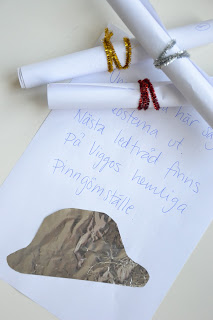 här
osterna ut.
Nästa ledtråd finns
på Viggos hemliga
pinngömställe